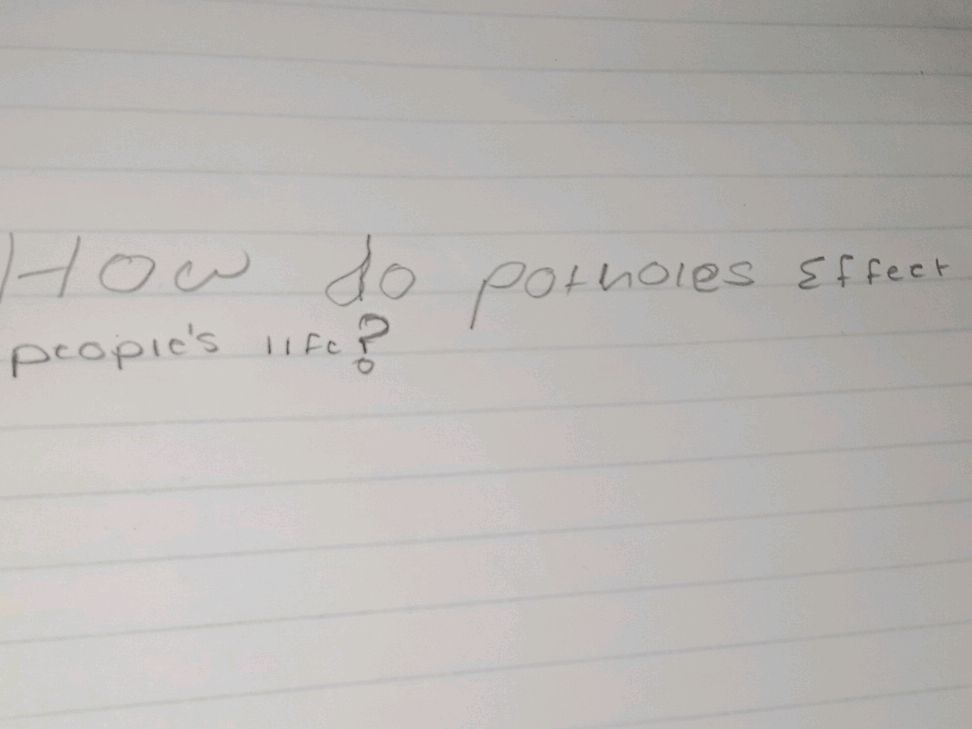 How do potholes Effect
people's life?